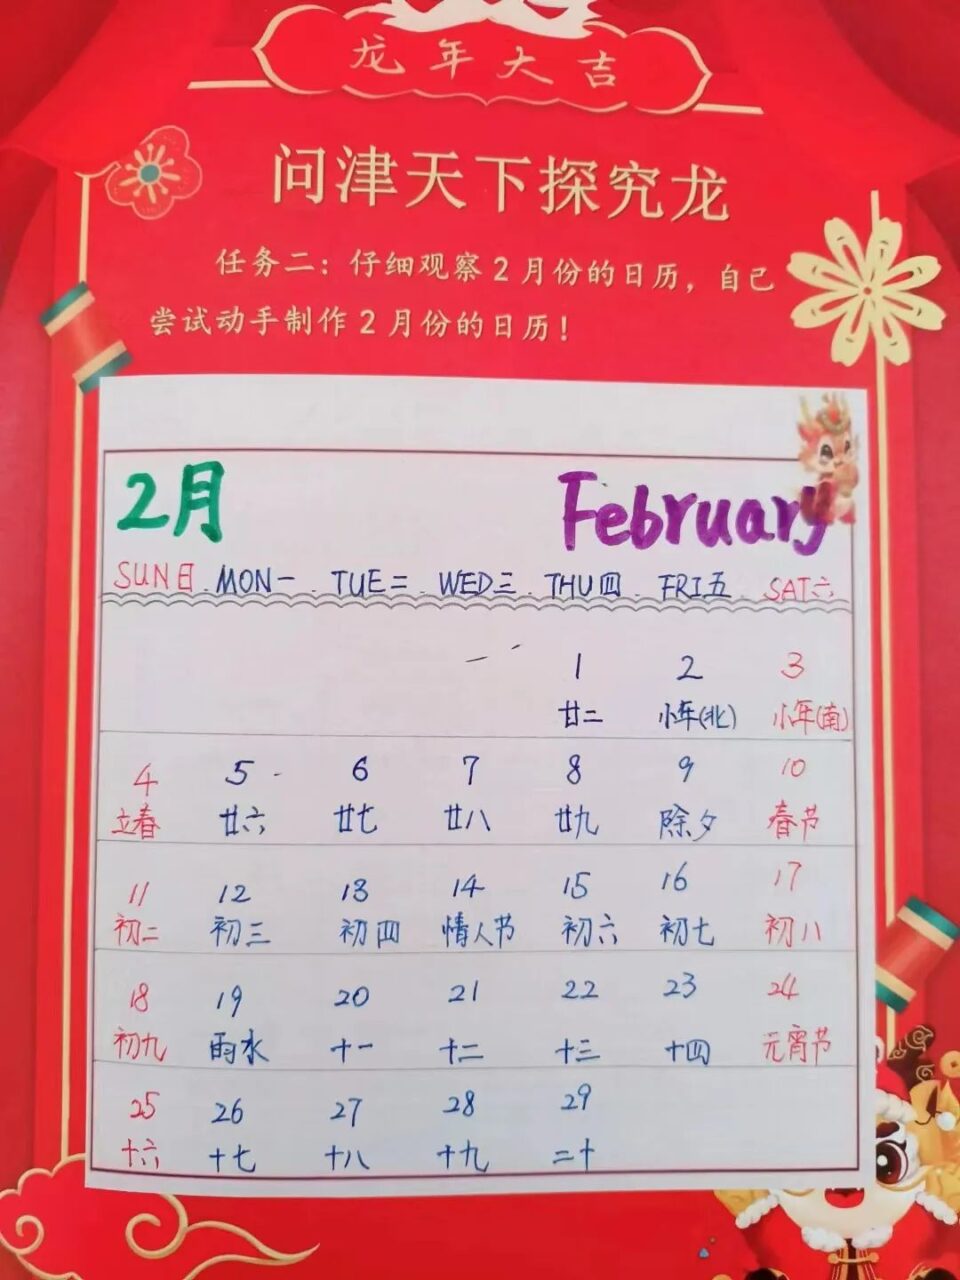 龙年大吉
问津天下探究龙
任务二：仔细观察2月份的日历，自己
尝试动手制作2月份的日历！
2月 February
SUN日 MON一 TUE二 WED三 THU四 FRI五 SAT六
1 2 3
廿二 小年(北) 小年(南)
4 5 6 7 8 9 10
立春 廿六 廿七 廿八 廿九 除夕 春节
11 12 13 14 15 16 17
初二 初三 初四 情人节 初六 初七 初八
18 19 20 21 22 23 24
初九 雨水 十一 十二 十三 十四 元宵节
25 26 27 28 29
十六 十七 十八 十九 二十